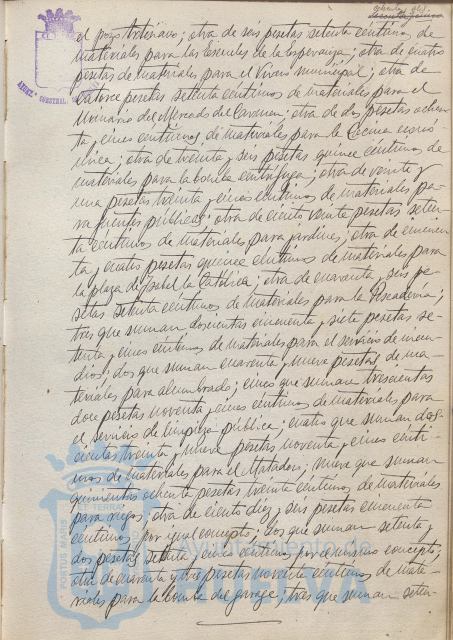 el pozo Artesiano; otra de seis pesetas setenta céntimos de
materiales para las Escuelas de la Esperanza; otra de cuatro
pesetas de materiales para el Vivero municipal; otra de
catorce pesetas setenta céntimos de materiales para el
Urinario del Mercado del Carmen; otra de dos pesetas ochen-
ta y cinco céntimos de materiales para la Cocina econó-
mica; otra de treinta y seis pesetas quince céntimos de
materiales para la bomba centrífuga; otra de veinte y
una pesetas treinta y cinco céntimos de materiales pa-
ra fuentes públicas; otra de ciento veinte pesetas seten-
ta céntimos de materiales para jardines; otra de cincuen-
ta y cuatro pesetas quince céntimos de materiales para
la plaza de Isabel la Católica; otra de cuarenta y seis pe-
setas setenta céntimos de materiales para la Pescadería;
tres que suman doscientas cincuenta y siete pesetas se-
tenta y cinco céntimos de materiales para el servicio de incen-
dios; dos que suman cuarenta y nueve pesetas, de ma-
teriales para alumbrado; cinco que suman trescientas
doce pesetas noventa y cinco céntimos de materiales para
el servicio de limpieza pública; cuatro que suman dos-
cientas treinta y nueve pesetas noventa y cinco cénti-
mos de materiales para el Matadero; nueve que suman
quinientas ochenta pesetas treinta céntimos de materiales
para riegos; otra de ciento diez y seis pesetas cincuenta
céntimos por igual concepto; dos que suman setenta y
dos pesetas setenta y cinco céntimos por el mismo concepto;
otra de cuarenta y tres pesetas noventa céntimos de mate-
riales para la bomba del garage; tres que suman seten-
PORTUS MARIS
ET TERRA
Ayuntamiento de
HUELVA